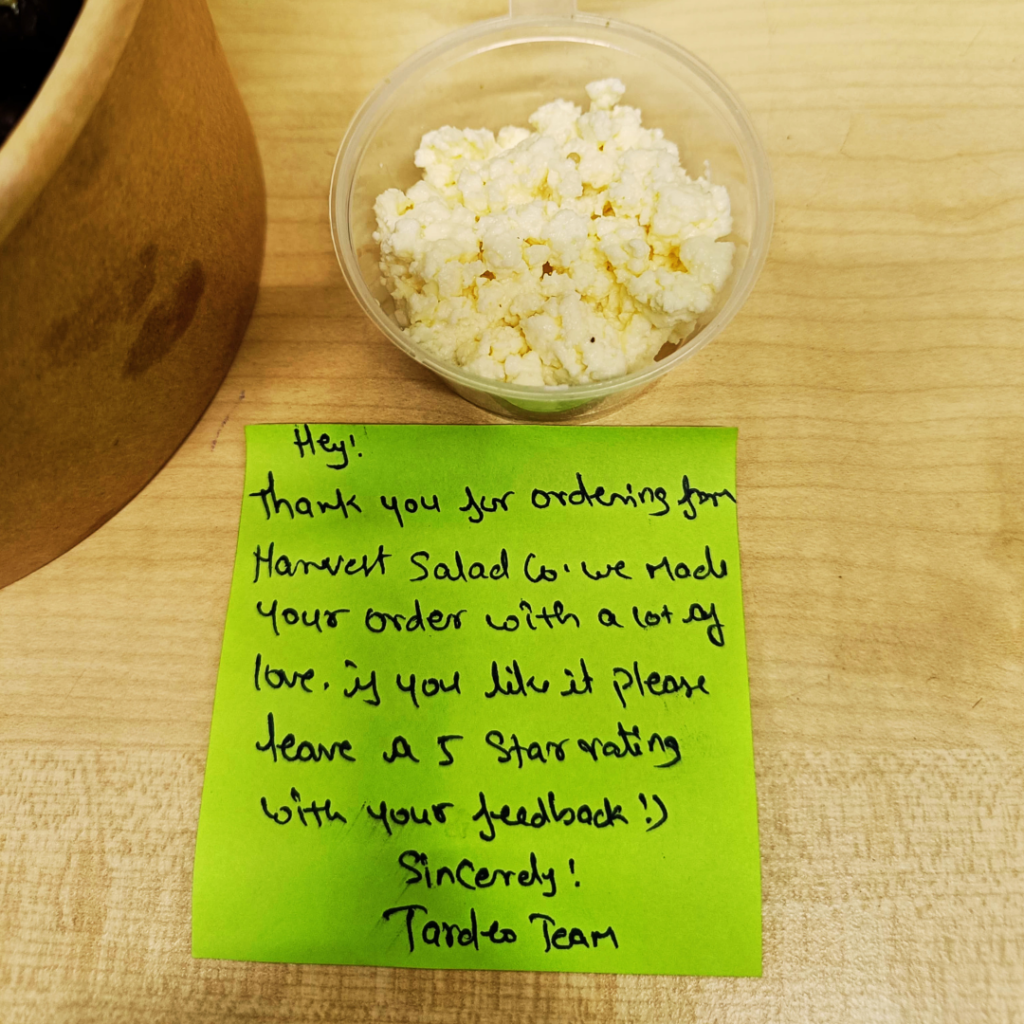 Hey!
Thank you for ordering from
Harvest Salad Co. we made
your order with a lot of
love. if you like it please
leave a 5 star rating
with your feedback !)
Sincerely!
Tardeo Team